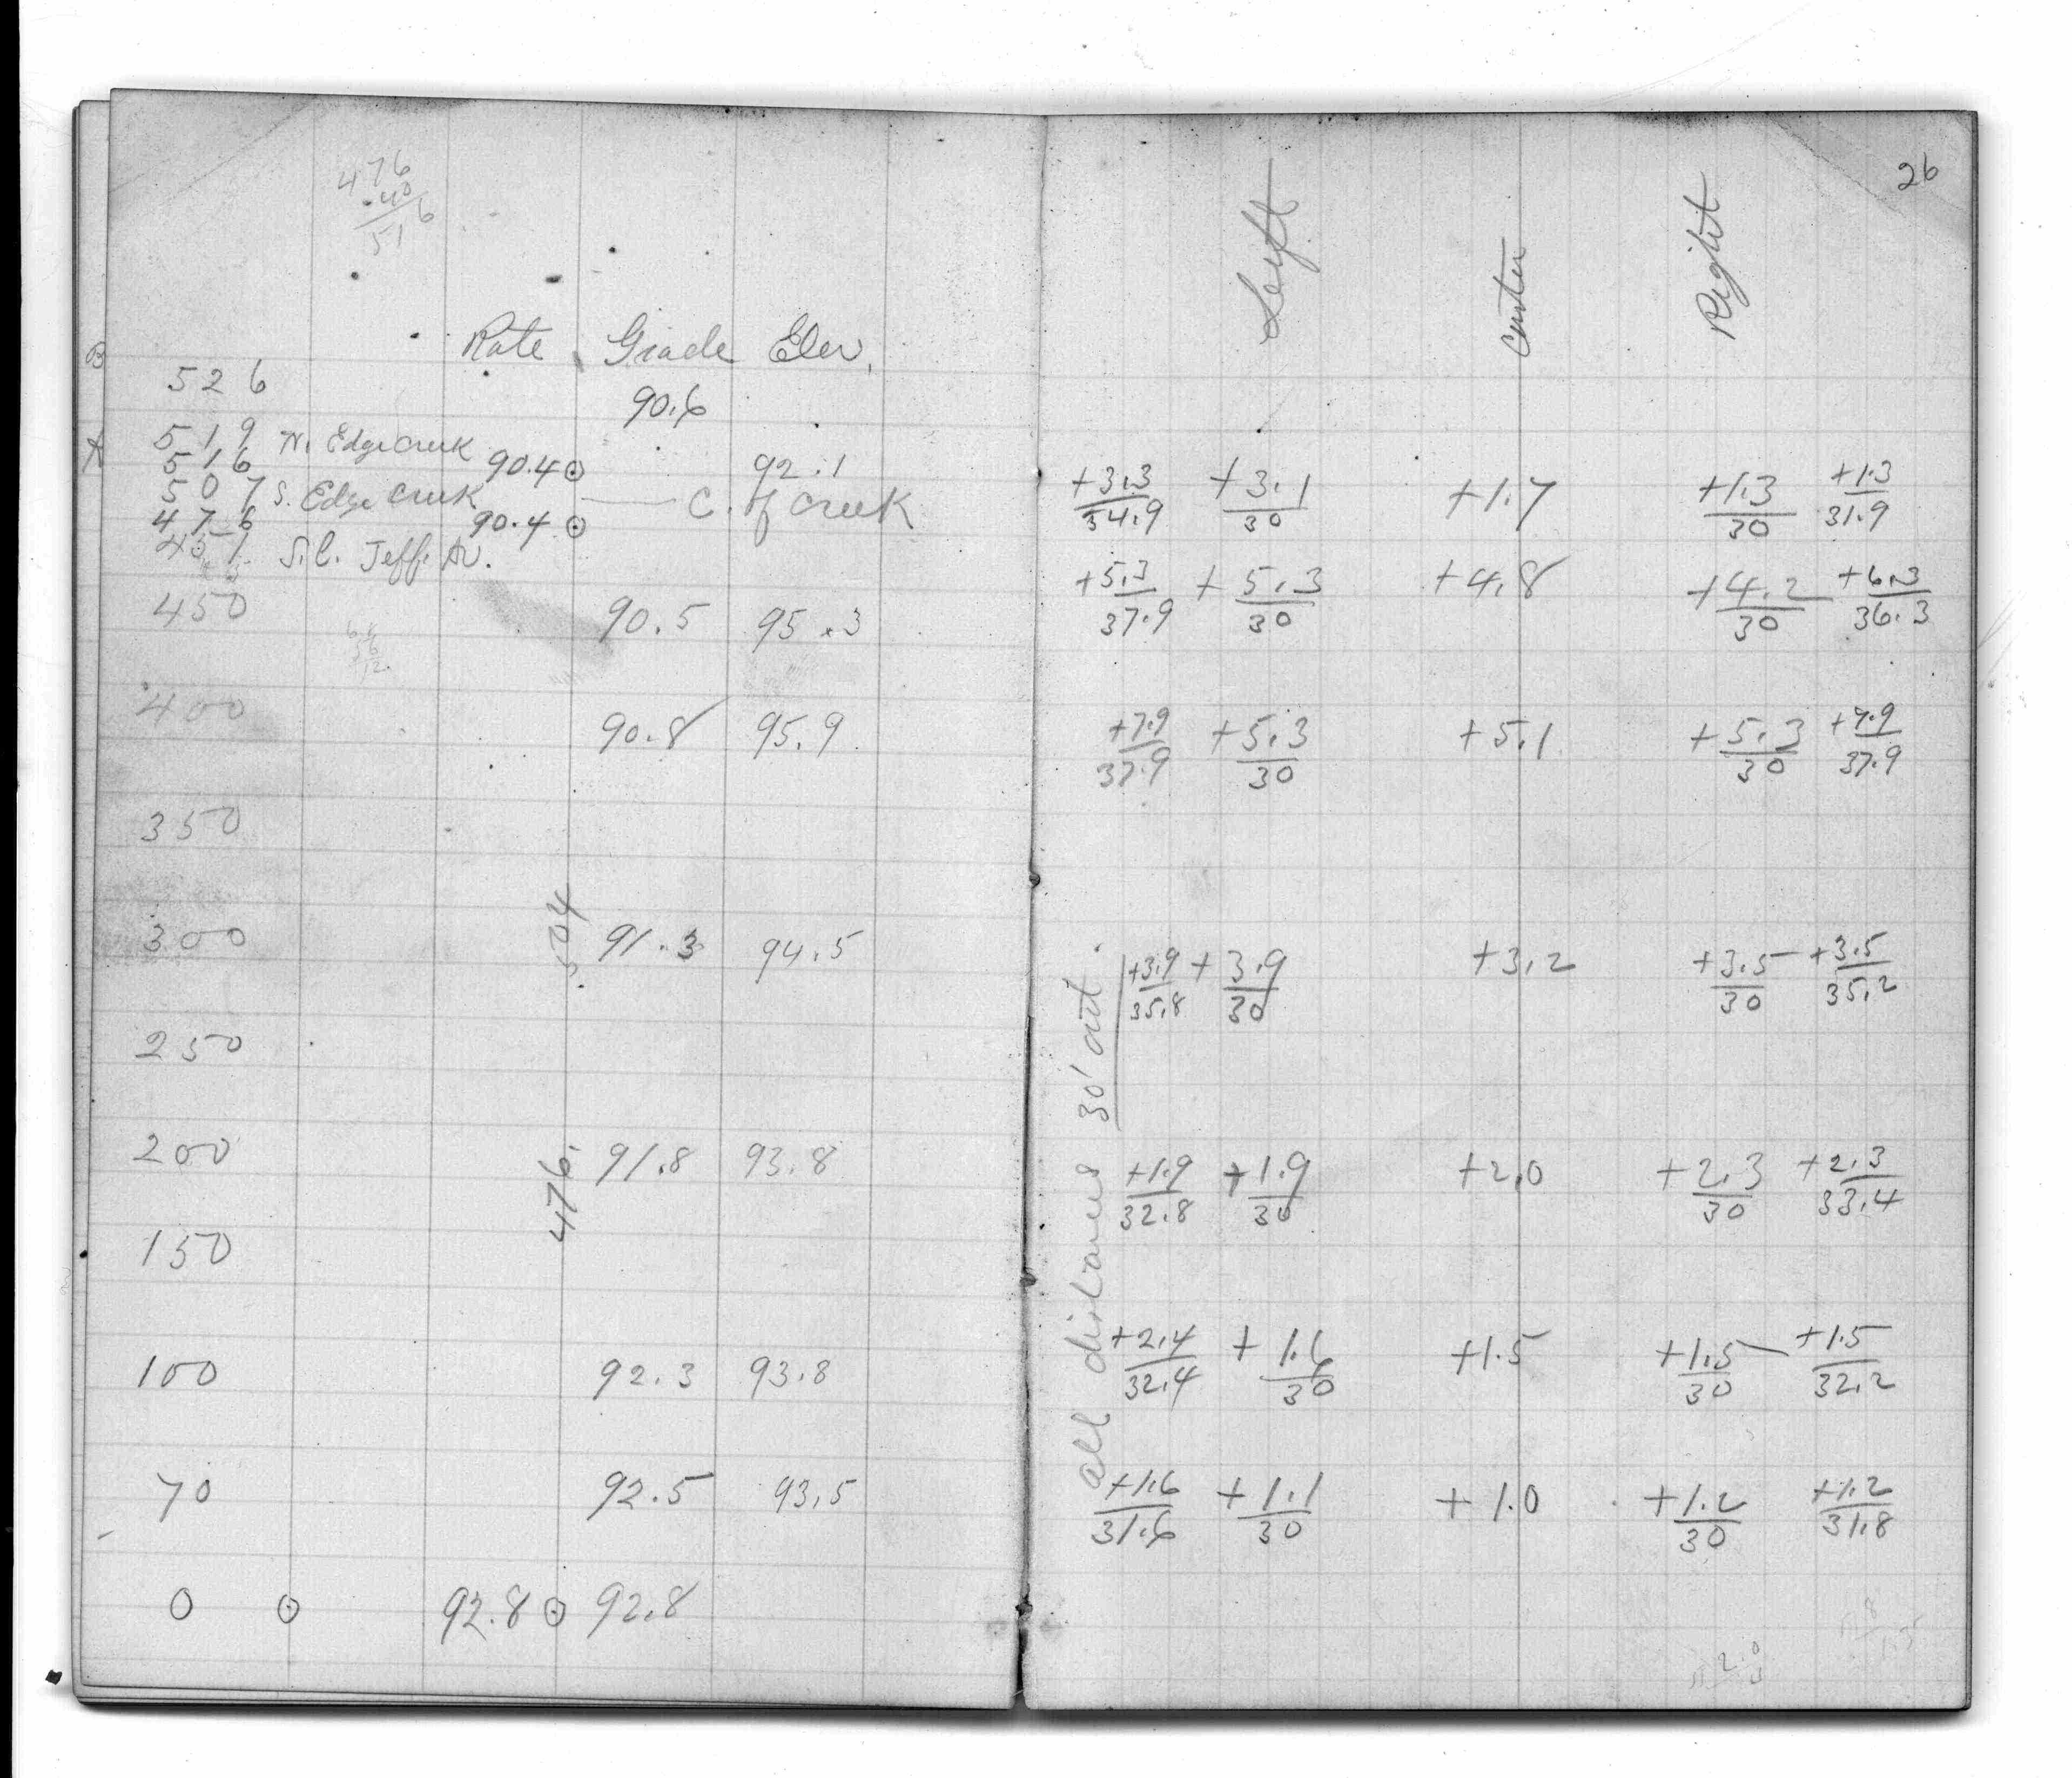 476
.40
516
Rate Grade Elev.
B
526
90.6
519 N. Edge Creek
A
516 90.4 ⊙ 92.1
507 S. Edge Creek C. of Creek
476 90.4 ⊙
451 S.C. Jeff. Av.
450 90.5 95.3
400 90.8 95.9
350
300 91.3 94.5
.504
250
200 91.8 93.8
476.
150
100 92.3 93.8
70 92.5 93.5
0 ⊙ 92.8 ⊙ 92.8
26
Left Center Right
+3.3/34.9 +3.1/30 +1.7 +1.3/30 +1.3/31.9
+5.3/37.9 +5.3/30 +4.8 +4.2/30 +6.3/36.3
+7.9/37.9 +5.3/30 +5.1 +5.3/30 +7.9/37.9
+3.9/35.8 +3.9/30 +3.2 +3.5/30 +3.5/35.2
+1.9/32.8 +1.9/30 +2.0 +2.3/30 +2.3/33.4
+2.4/32.4 +1.6/30 +1.5 +1.5/30 +1.5/32.2
+1.6/31.6 +1.1/30 +1.0 +1.2/30 +1.2/31.8
all distances 30' out.